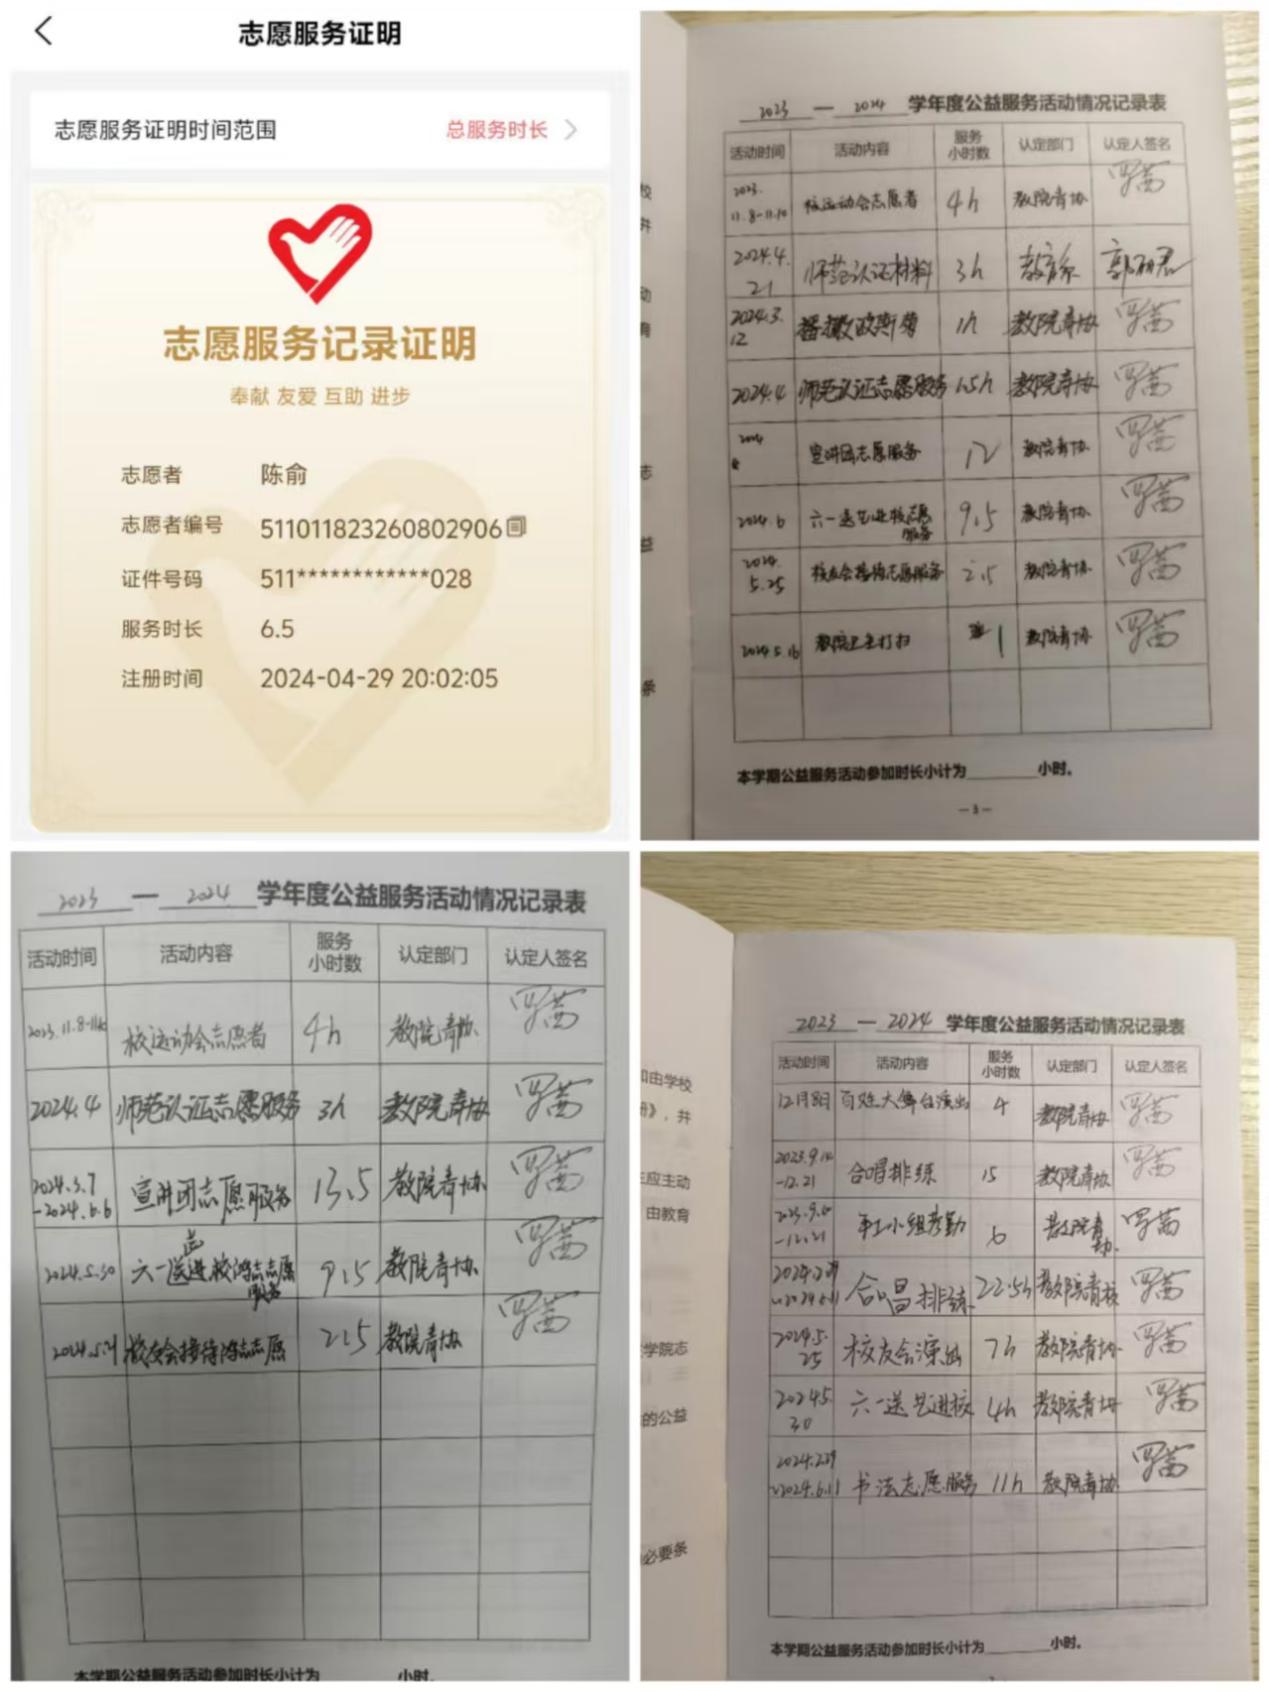 志愿服务证明
志愿服务证明时间范围
总服务时长
志愿服务记录证明
奉献 友爱 互助 进步
志愿者 陈俞
志愿者编号 511011823260802906
证件号码 511************028
服务时长 6.5
注册时间 2024-04-29 20:02:05
2023 — 2024 学年度公益服务活动情况记录表
活动时间 活动内容 服务小时数 认定部门 认定人签名
2023.11.8-11.10 校运动会志愿者 4h 教院青协
2024.4.21 师范认证材料 3h 教育系
2024.3.12 播撒波斯菊 1h 教院青协
2024.4 师范认证志愿服务 1.5h 教院青协
2024 宣讲团志愿服务 12 教院青协
2024.6 六一送艺进校志愿服务 9.5 教院青协
2024.5.25 校友会接待志愿服务 2.5 教院青协
2024.5.16 教院卫生打扫 1 教院青协
本学期公益服务活动参加时长小计为 小时。
—3—
2023 — 2024 学年度公益服务活动情况记录表
活动时间 活动内容 服务小时数 认定部门 认定人签名
2023.11.8-11.10 校运动会志愿者 4h 教院青协
2024.4 师范认证志愿服务 3h 教院青协
2024.3.7-2024.6.6 宣讲团志愿服务 13.5 教院青协
2024.5.30 六一送艺进校 志愿服务 9.5 教院青协
校友会接待 志愿 2.5 教院青协
本学期公益服务活动参加时长小计为 小时。
和由学校
》，并
应主动
由教育
学院志
的公益
必要条
2023 — 2024 学年度公益服务活动情况记录表
活动时间 活动内容 服务小时数 认定部门 认定人签名
12月8日 百姓大舞台演出 4 教院青协
-12.21 合唱排练 15 教院青协
-12.21 小组考勤 6 教院青协
合唱排练 22.5h 教院青协
2024.5.25 校友会演出 7h 教院青协
2024.5.30 六一送艺进校 4h 教院青协
2024.2.29 2024.6.11 书法志愿服务 11h 教院青协
本学期公益服务活动参加时长小计为 小时。